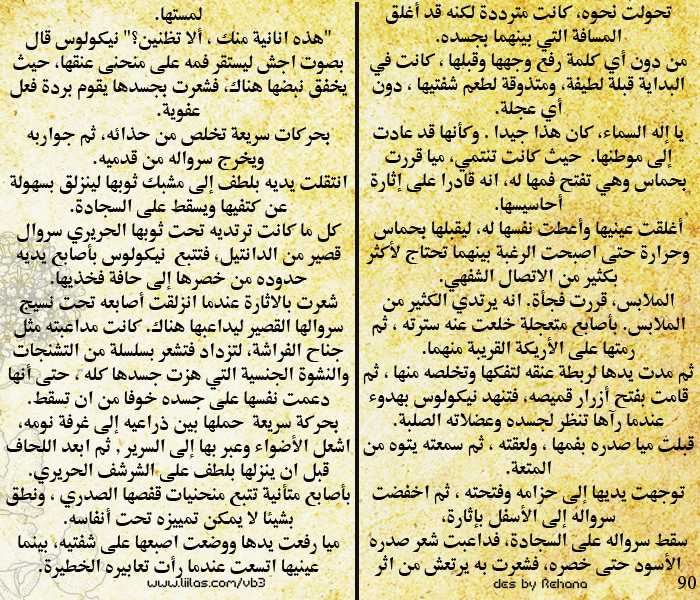 تحولت نحوه، كانت مترددة لكنه قد أغلق
المسافة التي بينهما بجسده.
من دون أي كلمة رفع وجهها وقبلها ، كانت في
البداية قبلة لطيفة، ومتذوقة لطعم شفتيها ، دون
أي عجلة.
يا إله السماء، كان هذا جيدا . وكأنها قد عادت
إلى موطنها. حيث كانت تنتمي، ميا قررت
بحماس وهي تفتح فمها له، انه قادرا على إثارة
أحاسيسها.
أغلقت عينيها وأعطت نفسها له، ليقبلها بحماس
وحرارة حتى اصبحت الرغبة بينهما تحتاج لأكثر
بكثير من الاتصال الشفهي.
الملابس، قررت فجأة. انه يرتدي الكثير من
الملابس. بأصابع متعجلة خلعت عنه سترته ، ثم
رمتها على الأريكة القريبة منهما.
ثم مدت يدها لربطة عنقه لتفكها وتخلصه منها ، ثم
قامت بفتح أزرار قميصه، فتنهد نيكولوس بهدوء
عندما رآها تنظر لجسده وعضلاته الصلبة.
قبلت ميا صدره بفمها ، ولعقته ، ثم سمعته يتوه من
المتعة.
توجهت يديها إلى حزامه وفتحته ، ثم اخفضت
سرواله إلى الأسفل بإثارة،
سقط سرواله على السجادة، فداعبت شعر صدره
الأسود حتى خصره، فشعرت به يرتعش من اثر
des by Rehana
90
لمستها.
"هذه انانية منك ، ألا تظنين؟" نيكولوس قال
بصوت اجش ليستقر فمه على منحنى عنقها، حيث
يخفق نبضها هناك، فشعرت بجسدها يقوم بردة فعل
عفوية.
بحركات سريعة تخلص من حذائه، ثم جواربه
ويخرج سرواله من قدميه.
انتقلت يديه بلطف إلى مشبك ثوبها لينزلق بسهولة
عن كتفيها ويسقط على السجادة.
كل ما كانت ترتديه تحت ثوبها الحريري سروال
قصير من الدانتيل، فتتبع نيكولوس بأصابع يديه
حدوده من خصرها إلى حافة فخذيها.
شعرت بالاثارة عندما انزلقت أصابعه تحت نسيج
سروالها القصير ليداعبها هناك. كانت مداعبته مثل
جناح الفراشة، لتزداد فتشعر بسلسلة من التشنجات
والنشوة الجنسية التي هزت جسدها كله ، حتى أنها
دعمت نفسها على جسده خوفا من ان تسقط.
بحركة سريعة حملها بين ذراعيه إلى غرفة نومه،
اشعل الأضواء وعبر بها إلى السرير , ثم ابعد اللحاف
قبل ان ينزلها بلطف على الشرشف الحريري.
بأصابع متأنية تتبع منحنيات قفصها الصدري ، ونطق
بشيئا لا يمكن تمييزه تحت أنفاسه.
ميا رفعت يدها ووضعت اصبعها على شفتيه، بينما
عينيها اتسعت عندما رأت تعابيره الخطيرة.
www.liilas.com/vb3